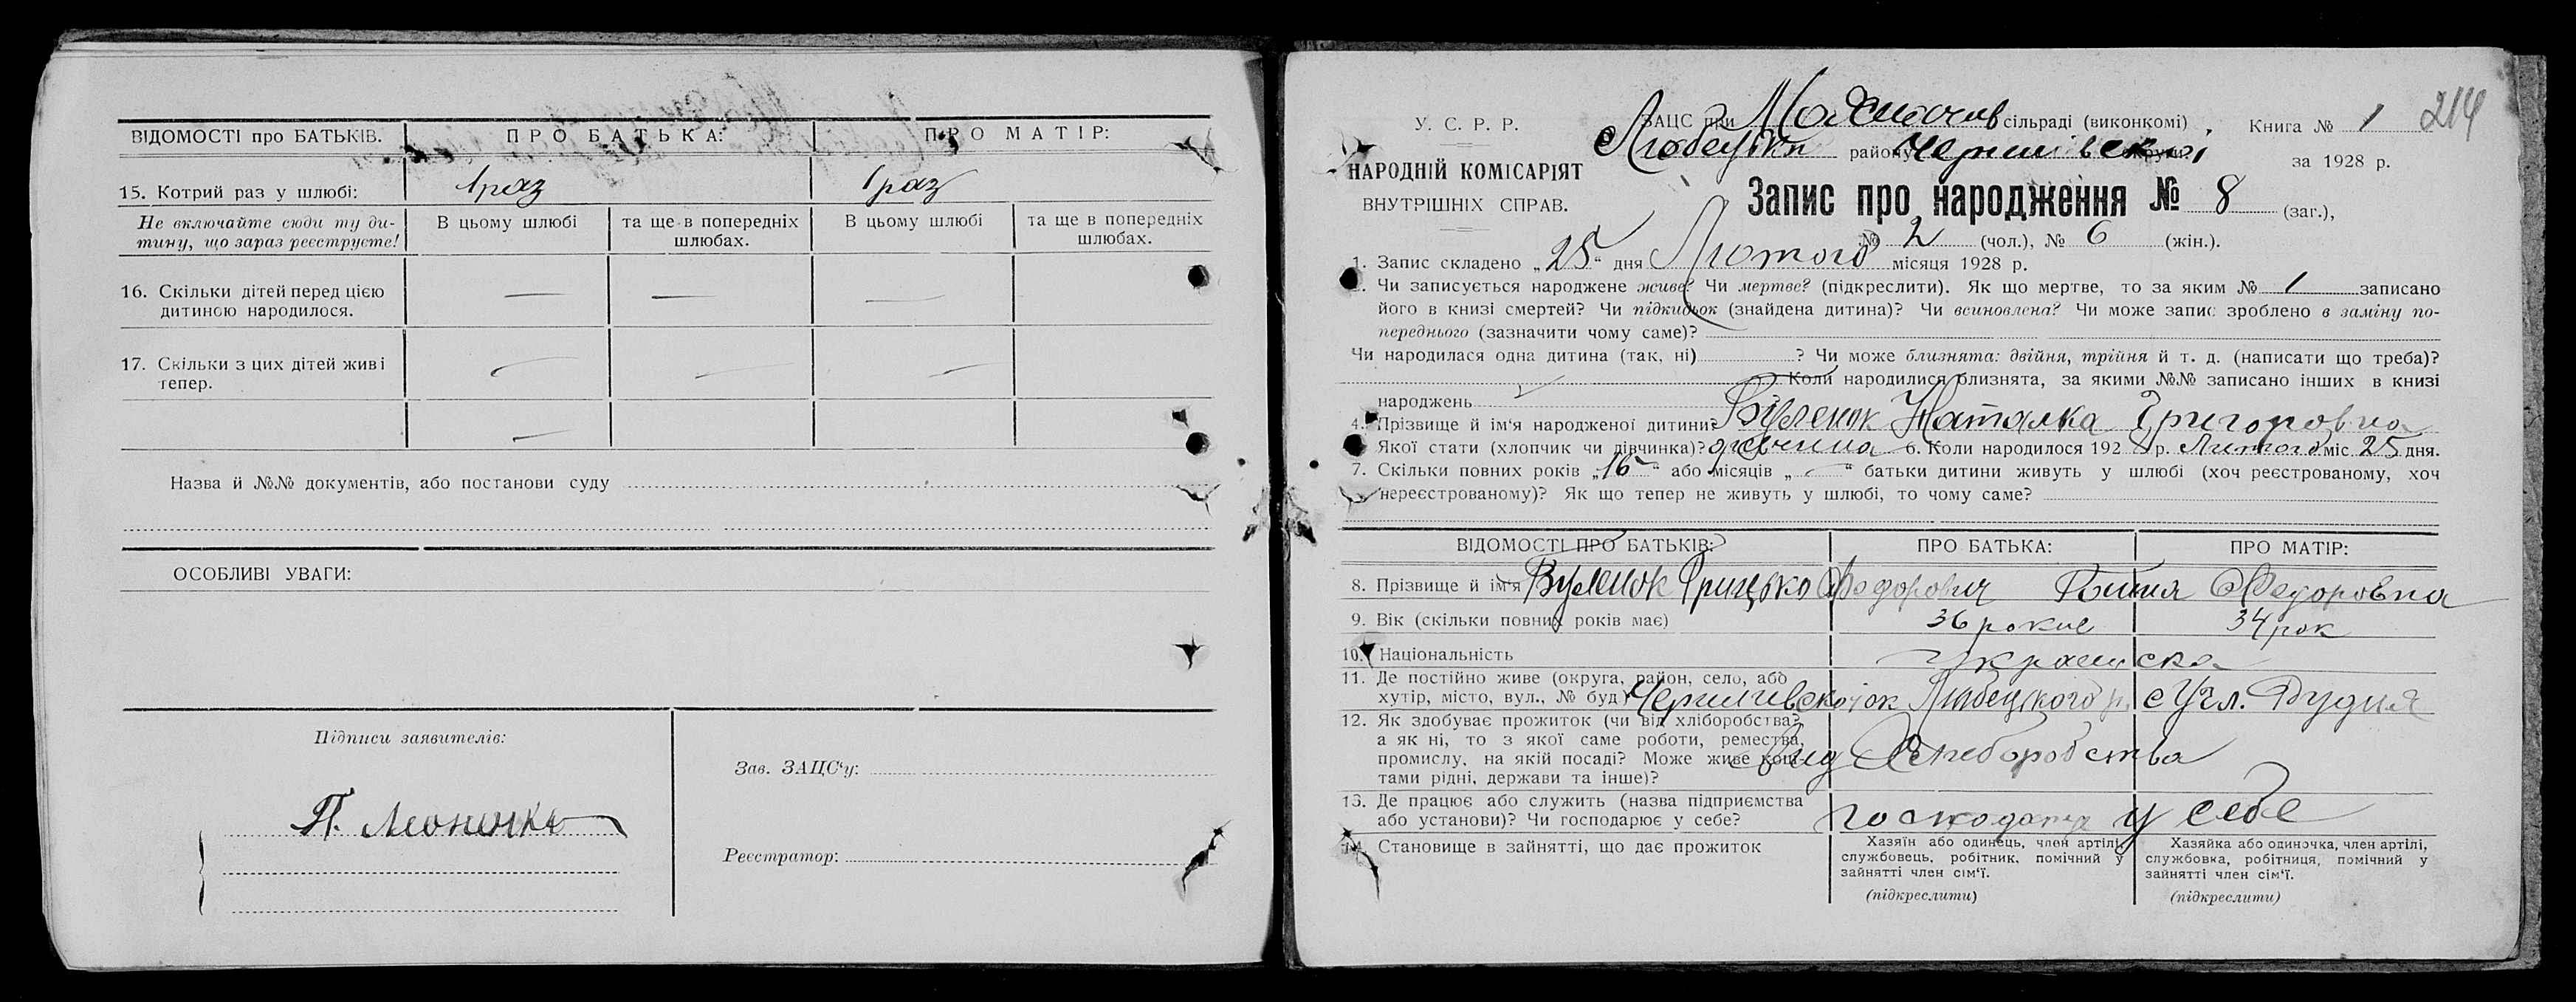 ВІДОМОСТІ про БАТЬКІВ. ПРО БАТЬКА: ПРО МАТІР:
15. Котрий раз у шлюбі: 1 раз 1 раз
Не включайте сюди ту ди-
тину, що зараз реєструєте!
В цьому шлюбі
та ще в попередніх
шлюбах.
В цьому шлюбі
та ще в попередніх
шлюбах.
16. Скільки дітей перед цією — — —
дитиною народилося.
17. Скільки з цих дітей живі — — —
тепер.
—
Назва й №№ документів, або постанови суду
ОСОБЛИВІ УВАГИ:
Підписи заявителів:
Зав. ЗАЦС‘у:
Реєстратор:
П.
У. С. Р. Р.
НАРОДНІЙ КОМІСАРІЯТ
ВНУТРІШНІХ СПРАВ.
ЗАЦС при сільраді (виконкомі)
району Чернигівської округи
Книга № 1 214
за 1928 р.
Запис про народження № 8 (заг.),
№ 2 (чол.), № 6 (жін.).
1. Запис складено „25“ дня Лютого місяця 1928 р.
Чи записується народжене живе? Чи мертве? (підкреслити). Як що мертве, то за яким № 1 записано
його в книзі смертей? Чи підкидьок (знайдена дитина)? Чи всиновлена? Чи може запис зроблено в заміну по-
переднього (зазначити чому саме)?
Чи народилася одна дитина (так, ні) ? Чи може близнята: двійня, трійня й т. д. (написати що треба)?
Коли народилися близнята, за якими №№ записано інших в книзі
народжень
4. Прізвище й ім‘я народженої дитини? Наталка Григоровна
Якої стати (хлопчик чи дівчинка)? 6. Коли народилося 1928 р. Лютого міс. 25 дня.
7. Скільки повних років „16“ або місяців „—“ батьки дитини живуть у шлюбі (хоч реєстрованому, хоч
нереєстрованому)? Як що тепер не живуть у шлюбі, то чому саме?
ВІДОМОСТІ ПРО БАТЬКІВ: ПРО БАТЬКА: ПРО МАТІР:
8. Прізвище й ім‘я Вуленок Грицько Федорович Федоровна
9. Вік (скільки повних років має) 36 34 рок
10. Національність
11. Де постійно живе (округа, район, село, або
хутір, місто, вул., № буд.) Любецького р. Рудня
12. Як здобуває прожиток (чи від хліборобства?
а як ні, то з якої саме роботи, ремества,
промислу, на якій посаді? Може живе кош-
тами рідні, держави та інше)?
Від Хлеборобства
13. Де працює або служить (назва підприємства
або установи)? Чи господарює у себе?
у себе
14. Становище в зайнятті, що дає прожиток
Хазяїн або одинець, член артілі,
службовець, робітник, помічний у
зайнятті член сім‘ї.
(підкреслити)
Хазяйка або одиночка, член артілі,
службовка, робітниця, помічний у
зайнятті член сім‘ї.
(підкреслити)